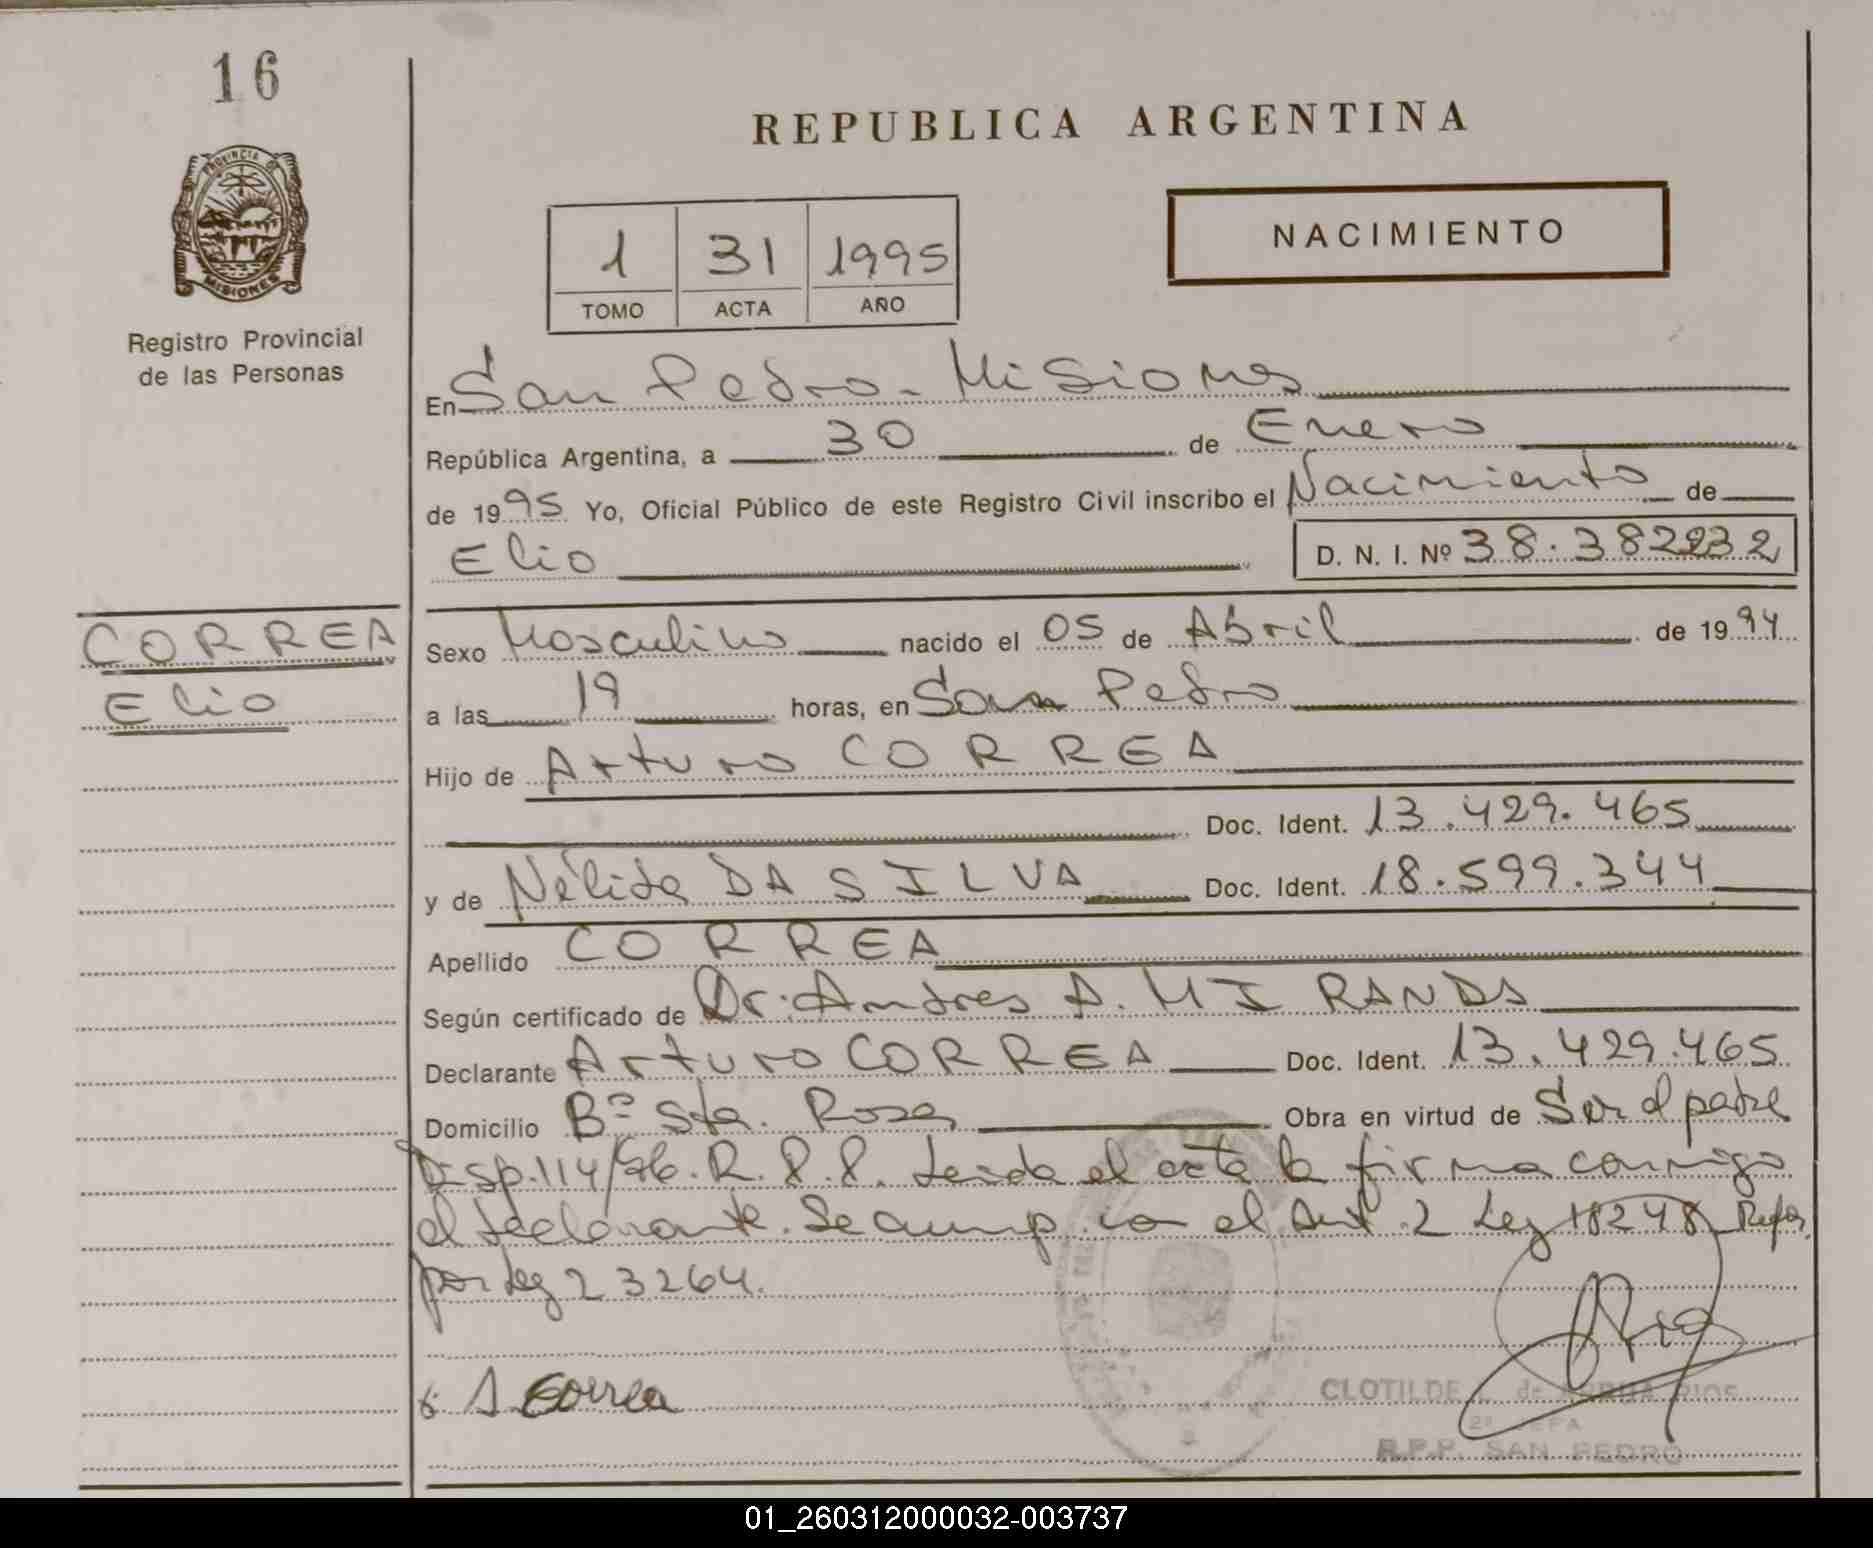 16
PROVINCIA DE
MISIONES
Registro Provincial
de las Personas
REPUBLICA ARGENTINA
1 31 1995
TOMO ACTA AÑO
NACIMIENTO
En San Pedro - Misiones
República Argentina, a 30 de Enero
de 1995 Yo, Oficial Público de este Registro Civil inscribo el Nacimiento de
Elio D. N. I. Nº 38.382232
CORREA
Elio
Sexo Masculino nacido el 05 de Abril de 1994
a las 19 horas, en San Pedro
Hijo de Arturo CORREA
Doc. Ident. 13.429.465
y de Nélida DA SILVA Doc. Ident. 18.599.344
Apellido CORREA
Según certificado de Dr. Andres A. MIRANDA
Declarante Arturo CORREA Doc. Ident. 13.429.465
Domicilio Bº Sta. Rosa Obra en virtud de Ser el padre
Disp. 114/86. R.P.P. Leida el acta la firma conmigo
el declarante. Se cump. con el Art. 2 Ley 18248 Refor.
por Ley 23264.
A Correa
CLOTILDE de RIOS
2º JEFA
R.P.P. SAN PEDRO
01_260312000032-003737